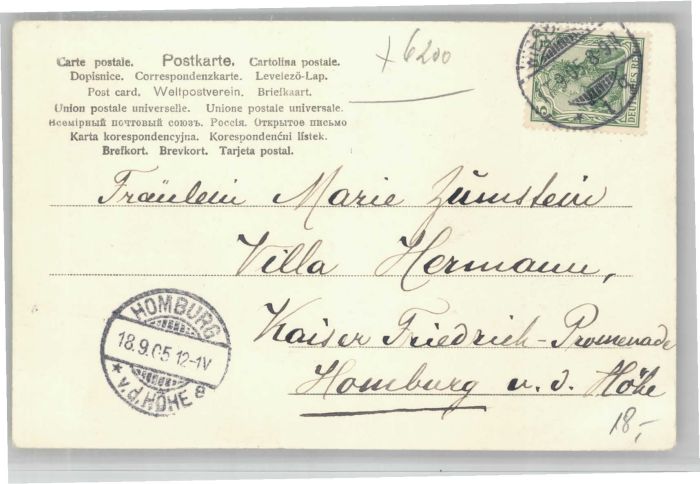 Carte postale. Postkarte. Cartolina postale.
Dopisnice. Correspondenzkarte. Levelezö-Lap.
Post card. Weltpostverein. Briefkaart.
Union postale universelle. Unione postale universale.
Всемірный почтовый союзъ. Россія. Открытое письмо
Karta korespondencyjna. Korespondenčni lístek.
Brefkort. Brevkort. Tarjeta postal.
6200
DEUTSCHES REICH
Fräulein Marie Zumstein
Villa Hermann,
Kaiser Friedrich-Promenade
Homburg v. d. Höhe
HOMBURG
18.9.05 12-1V
* v.d.HÖHE a
18,-